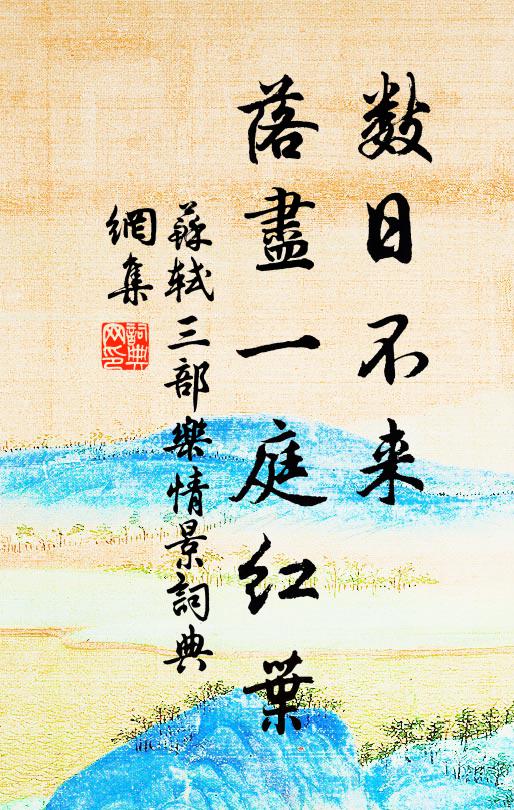 数日不来
落盡一庭红葉
蘇軾三部樂情景詞典
網集
詞典
网印